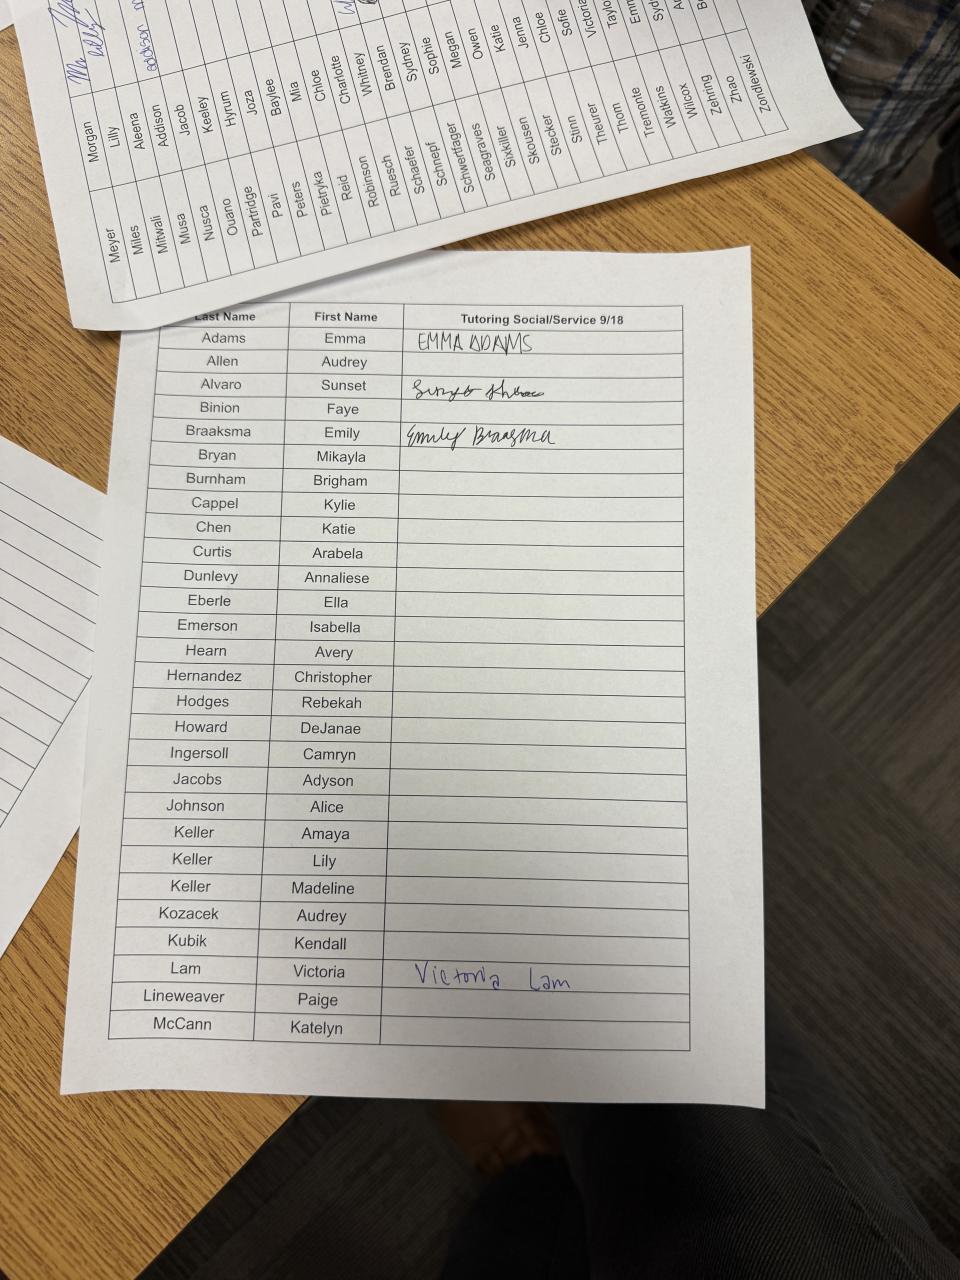 Meyer Morgan
Miles Lilly
Mitwali Aleena
Musa Addison Addison
Nusca Jacob
Ouano Keeley
Partridge Hyrum
Pavi Joza
Peters Baylee
Pietryka Mia
Reid Chloe
Robinson Charlotte
Ruesch Whitney
Schaefer Brendan
Schnepf Sydney
Schwerttager Sophie
Seagraves Megan
Sixkiller Owen
Skousen Katie
Stecker Jenna
Sunn Chloe
Theurer Sofie
Thom
Tremonte
Watkins
Wilcox
Zehring
Zhao
Zondlewski
Last Name First Name Tutoring Social/Service 9/18
Adams Emma EMMA ADAMS
Allen Audrey
Alvaro Sunset
Binion Faye
Braaksma Emily Emily Braaksma
Bryan Mikayla
Burnham Brigham
Cappel Kylie
Chen Katie
Curtis Arabela
Dunlevy Annaliese
Eberle Ella
Emerson Isabella
Hearn Avery
Hernandez Christopher
Hodges Rebekah
Howard DeJanae
Ingersoll Camryn
Jacobs Adyson
Johnson Alice
Keller Amaya
Keller Lily
Keller Madeline
Kozacek Audrey
Kubik Kendall
Lam Victoria Victoria Lam
Lineweaver Paige
McCann Katelyn